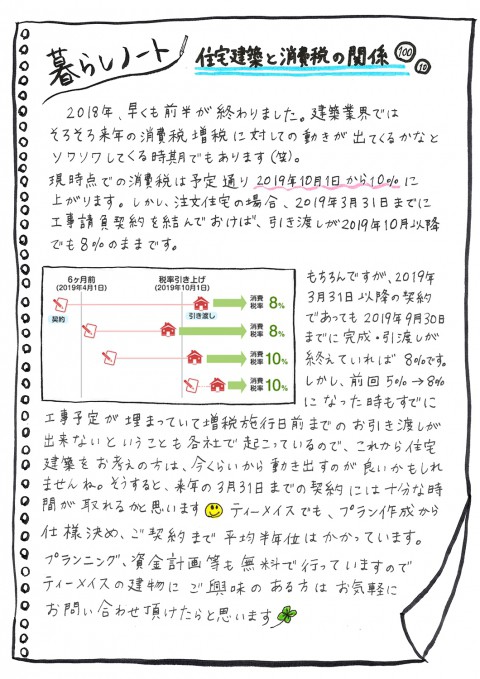 暮らしノート
住宅建築と消費税の関係 100 10
2018年、早くも前半が終わりました。建築業界では
そろそろ来年の消費税増税に対しての動きが出てくるかなと
ソワソワしてくる時期でもあります(笑)。
現時点での消費税は予定通り2019年10月1日から10%に
上がります。しかし、注文住宅の場合、2019年3月31日までに
工事請負契約を結んでおけば、引き渡しが2019年10月以降
でも8%のままです。
6ヶ月前 税率引き上げ
(2019年4月1日) (2019年10月1日)
契約 引き渡し 消費税率 8%
消費税率 8%
消費税率 10%
消費税率 10%
もちろんですが、2019年
3月31日以降の契約
であっても2019年9月30日
までに完成・引渡しが
終えていれば8%です。
しかし、前回5%→8%
になった時もすでに
工事予定が埋まっていて増税施行日前までのお引き渡しが
出来ないということも各社で起こっているので、これから住宅
建築をお考えの方は、今くらいから動き出すのが良いかもしれ
ませんね。そうすると、来年の3月31日までの契約には十分な時
間が取れるかと思います
ティーメイスでも、プラン作成から
仕様決め、ご契約まで平均半年位はかかっています。
プランニング、資金計画等も無料で行っていますので
ティーメイスの建物にご興味のある方はお気軽に
お問い合わせ頂けたらと思います